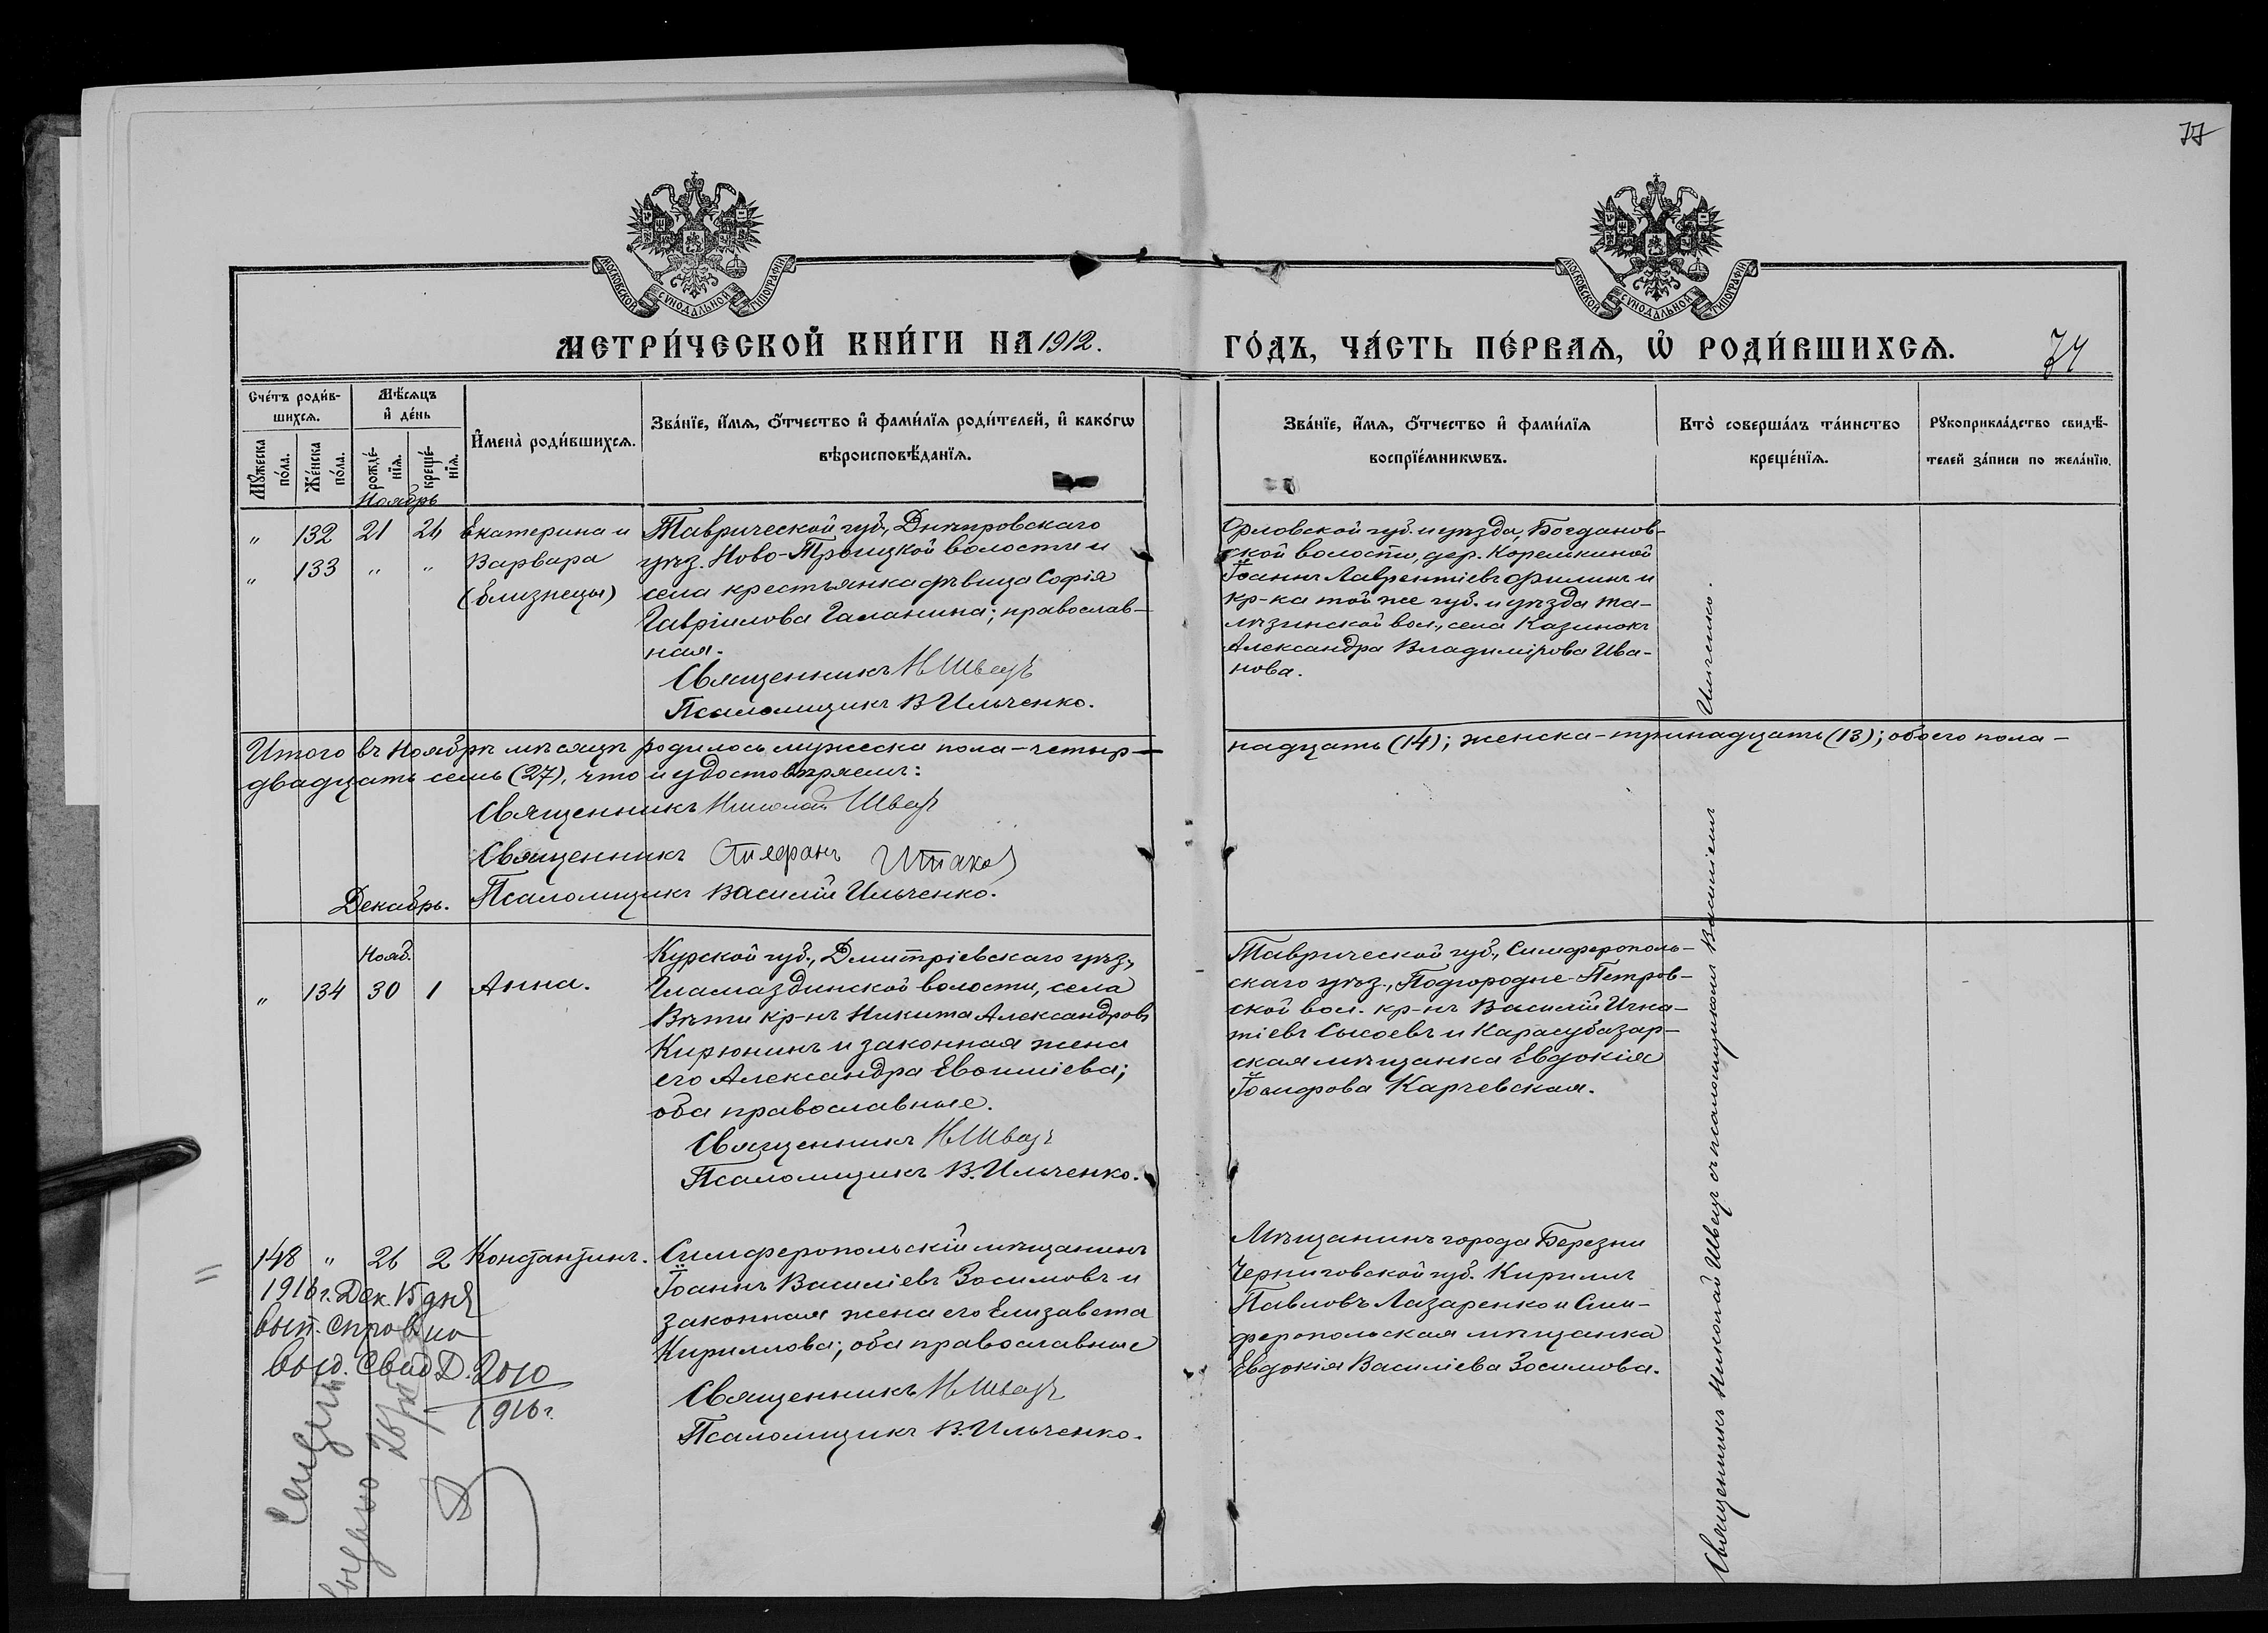 77
МОСКОВСКОЙ СѴНОДАЛЬНОЙ ТИПОГРАФІИ
МОСКОВСКОЙ СѴНОДАЛЬНОЙ ТИПОГРАФІИ
МЕТРИ́ЧЕСКОЙ КНИ́ГИ НА 1912.
ГО́ДЪ, ЧА́СТЬ ПЕ́РВАѦ, Ѡ҆ РОДИ́ВШИХСѦ.
74
Сче́тъ роди́в-
шихсѧ.
Мꙋ́жеска
по́ла.
Же́нска
по́ла.
Мѣ́сѧцъ
и҆ де́нь
рожде́-
нїѧ.
креще́-
нїѧ.
И҆мена̀ роди́вшихсѧ.
Зва́нїе, и҆́мѧ, ѻ҆́тчество и҆ фами́лїѧ роди́телей, и҆ како́гѡ
вѣроисповѣ́данїѧ.
Зва́нїе, и҆́мѧ, ѻ҆́тчество и҆ фами́лїѧ
воспрїе́мникѡвъ.
Кто̀ соверша́лъ та́инство
креще́нїѧ.
Рꙋкоприкла́дство свидѣ́-
телей за́писи по жела́нїю.
Ноябрь
" 132 21 26 Екатерина и
" 133 " " Варвара
(близнецы)
Таврической губ., Днѣпровскаго
уѣз. Ново-Троицкой волости и
села крестьянка дѣвица Софія
Гавріилова Галанина; православ-
ная.
Священникъ Н Швецъ
Псаломщикъ В Ильченко.
Орловской губ. и уѣзда, Богданов-
ской волости, дер. Корелкиной
Іоаннъ Лаврентіевъ Филинъ и
кр-ка той же губ. и уѣзда
вол., села Казинокъ
Александра Владимірова Ива-
нова.
Итого въ Ноябрѣ мѣсяцѣ родилось мужеска пола - четыр-
надцать (14); женска - тринадцать (13); обоего пола -
двадцать семь (27), что и удостовѣряемъ:
Священникъ Николай Швецъ
Священникъ Стефанъ
Псаломщикъ Василій Ильченко.
Декабрь.
Нояб.
" 134 30 1 Анна.
Курской губ., Дмитріевскаго уѣз.,
Гламаздинской волости, села
Вѣти кр-нъ Никита Александровъ
Кирюнинъ и законная жена
его Александра Евѳиміева;
оба православные.
Священникъ Н Швецъ
Псаломщикъ В. Ильченко.
Таврической губ., Симферополь-
скаго уѣз., Подгородне-Петров-
ской вол. кр-нъ Василій Игна-
тіевъ Сысоевъ и Карасубазар-
ская мѣщанка Евдокія
Іосифова Карчевская.
148 " 26 2 Константинъ.
Симферопольскій мѣщанинъ
Іоаннъ Василіевъ Зосимовъ и
законная жена его Елизавета
Кириллова; оба православные
Священникъ Н Швецъ
Псаломщикъ В. Ильченко.
Мѣщанинъ города Березни
Черниговской губ. Кириллъ
Павловъ Лазаренко и Сим-
феропольская мѣщанка
Евдокія Василіева Зосимова.
1916 г. Дек. 15 дня
выд. Свид. 2010
1916 г.
Священникъ Николай Швецъ съ псаломщикомъ Василіемъ Ильченко.